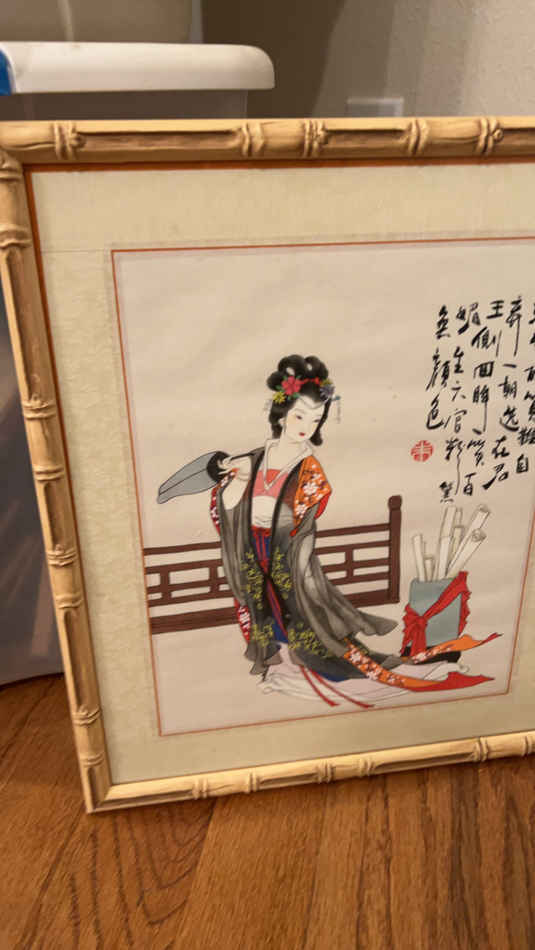 質難自
弃一朝選在君
王側回眸一笑百
媚生六宮粉黛
無顏色